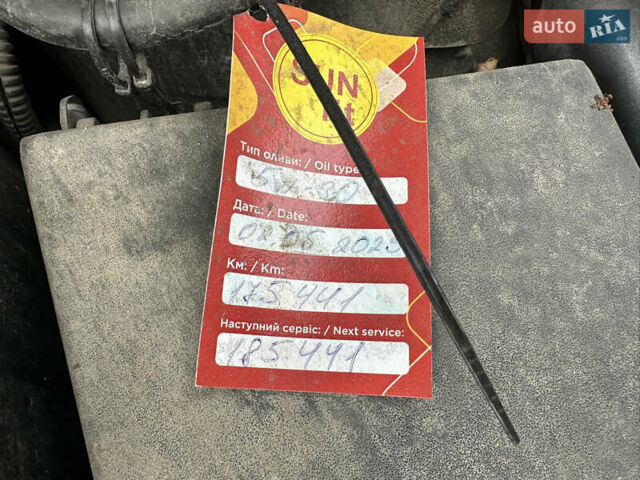 auto RIA.com
SUN
Тип оливи: / Oil type
5w-30
Дата: / Date:
02.05 2023
Км: / Km:
175 441
Наступний сервіс: / Next service:
185 441